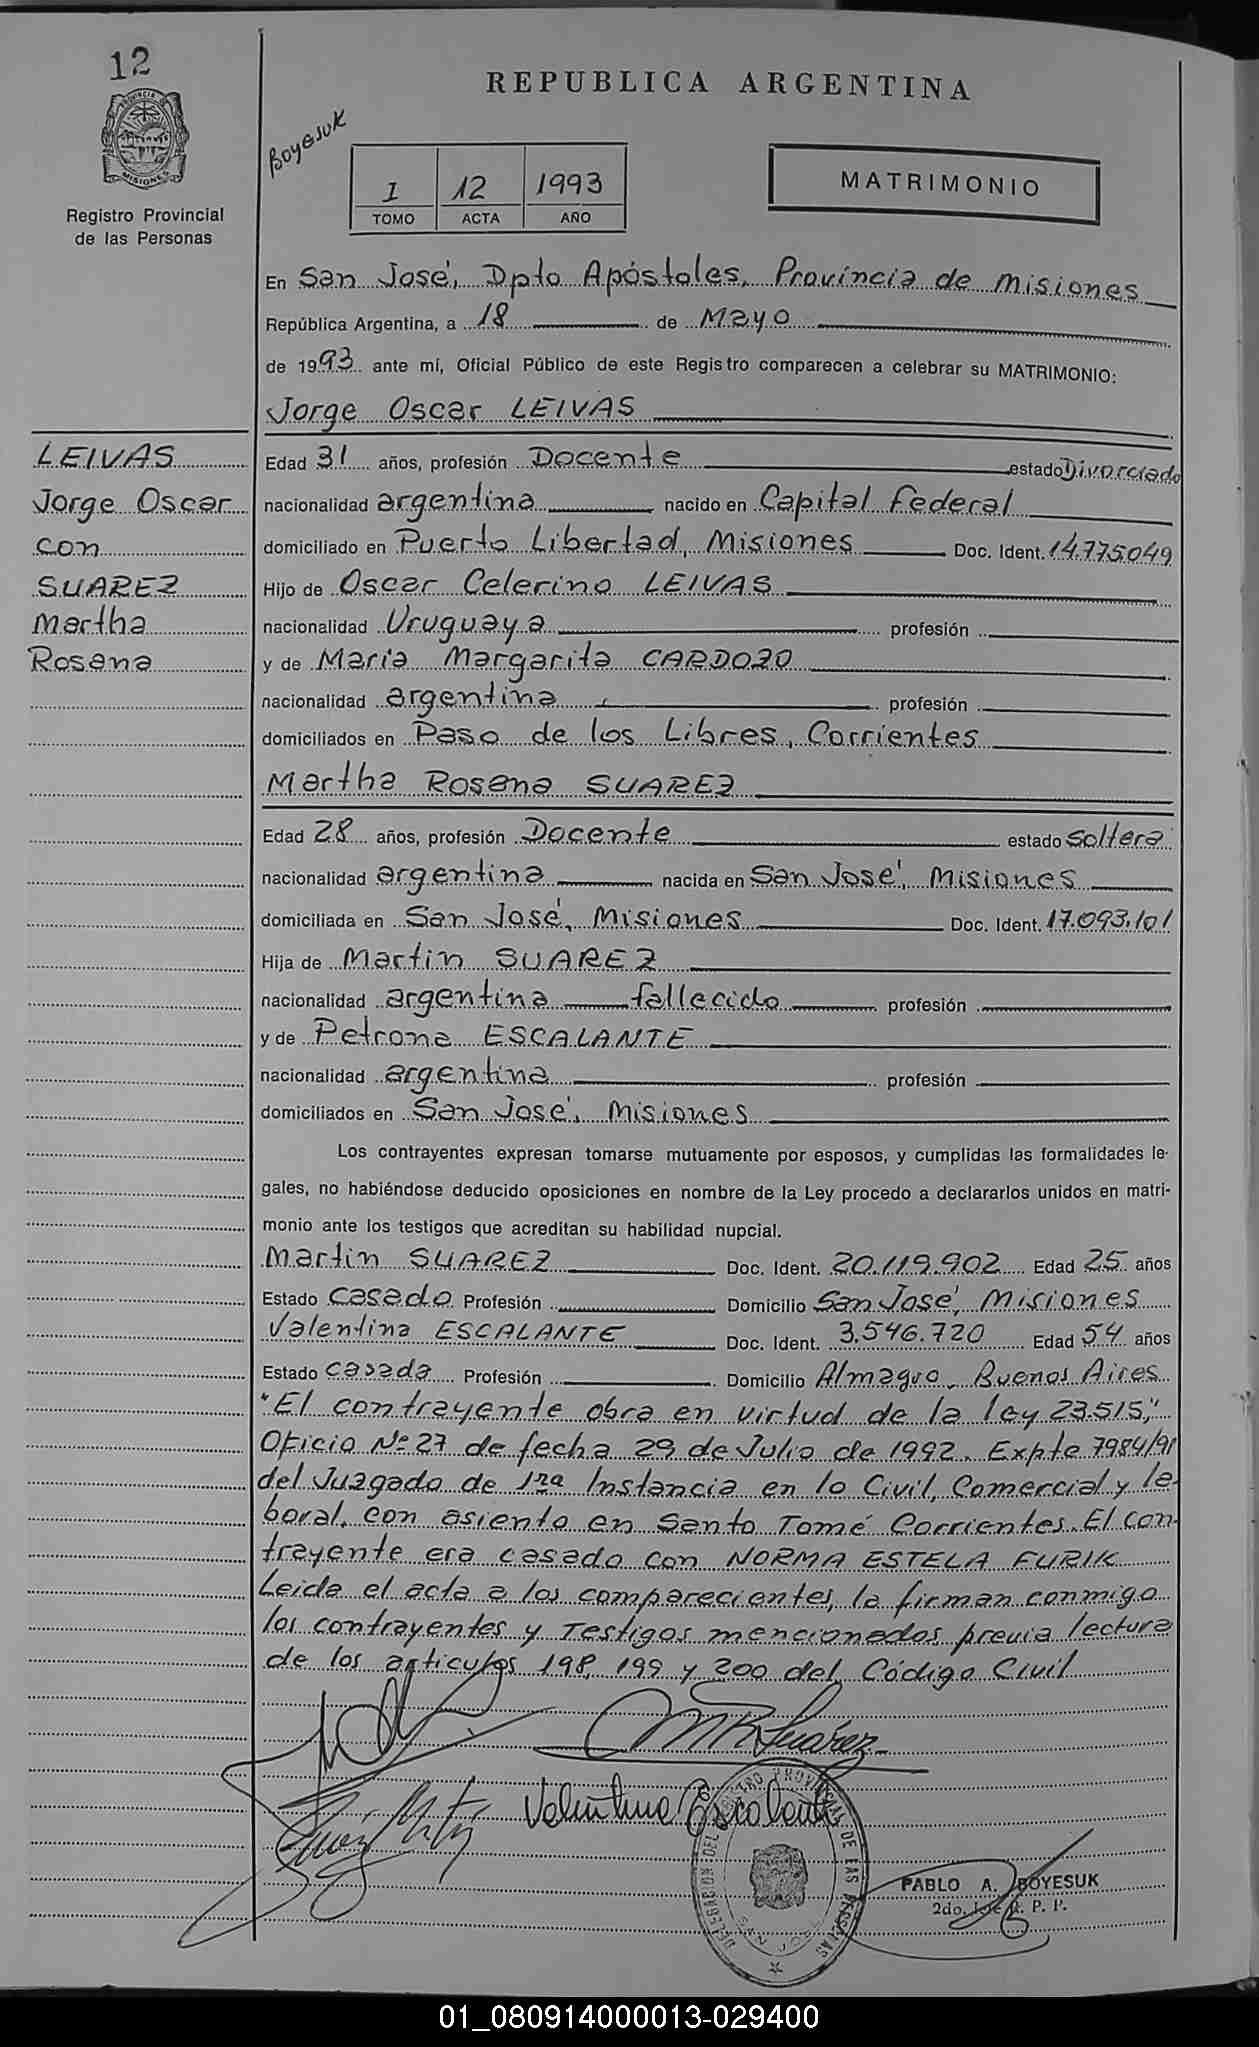 12
PROVINCIA DE
MISIONES
Registro Provincial
de las Personas
REPUBLICA ARGENTINA
Boyesuk
I 12 1993
TOMO ACTA AÑO
MATRIMONIO
En San José, Dpto Apóstoles, Provincia de Misiones
República Argentina, a 18 de Mayo
de 1993 ante mí, Oficial Público de este Registro comparecen a celebrar su MATRIMONIO:
Jorge Oscar LEIVAS
LEIVAS
Jorge Oscar
con
SUAREZ
Martha
Rosana
Edad 31 años, profesión Docente estado Divorciado
nacionalidad argentina nacido en Capital Federal
domiciliado en Puerto Libertad, Misiones Doc. Ident. 14.775.049
Hijo de Oscar Celerino LEIVAS
nacionalidad Uruguaya profesión
y de Maria Margarita CARDOZO
nacionalidad argentina profesión
domiciliados en Paso de los Libres, Corrientes
Martha Rosana SUAREZ
Edad 28 años, profesión Docente estado soltera
nacionalidad argentina nacida en San José, Misiones
domiciliada en San José, Misiones Doc. Ident. 17.093.101
Hija de Martin SUAREZ
nacionalidad argentina fallecido profesión
y de Petrona ESCALANTE
nacionalidad argentina profesión
domiciliados en San José, Misiones
Los contrayentes expresan tomarse mutuamente por esposos, y cumplidas las formalidades le-
gales, no habiéndose deducido oposiciones en nombre de la Ley procedo a declararlos unidos en matri-
monio ante los testigos que acreditan su habilidad nupcial.
Martin SUAREZ Doc. Ident. 20.119.902 Edad 25 años
Estado casado Profesión Domicilio San José, Misiones
Valentina ESCALANTE Doc. Ident. 3.546.720 Edad 54 años
Estado casada Profesión Domicilio Almagro, Buenos Aires
"El contrayente obra en virtud de la ley 23.515,"
Oficio Nº 27 de fecha 29 de Julio de 1992. Expte 7984/91
del Juzgado de 1ra Instancia en lo Civil, Comercial y la-
boral, con asiento en Santo Tomé Corrientes. El con-
trayente era casado con NORMA ESTELA FURIK
Leida el acta a los comparecientes, la firman conmigo
los contrayentes y Testigos mencionados previa lectura
de los articulos 198, 199 y 200 del Código Civil
MRSuárez
Valentina Escalante
DELEGACION DEL REGISTRO PROVINCIAL DE LAS PERSONAS
SAN JOSE
PABLO A. BOYESUK
2do. Jefe R. P. P.
01_080914000013-029400